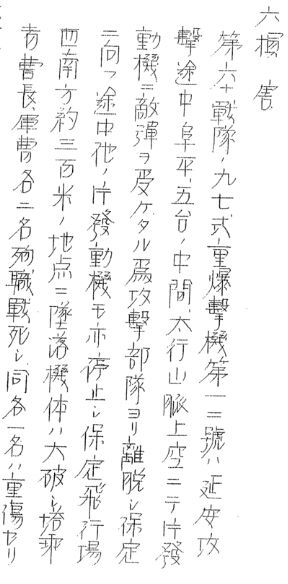 六損害
第六十戰隊ノ九七式重爆擊機第一三號ハ延安攻
擊途中阜平、五台ノ中間、太行山脈上空ニテ片發
動機ニ敵彈ヲ受ケタル爲攻擊部隊ヨリ離脫シ保定
ニ向フ途中他ノ片發動機モ亦停止シ保定飛行場
西南方約三百米ノ地点ニ墜落機体ハ大破シ搭乘
者曹長、軍曹各二名殉職戰死シ同各一名ハ重傷セリ